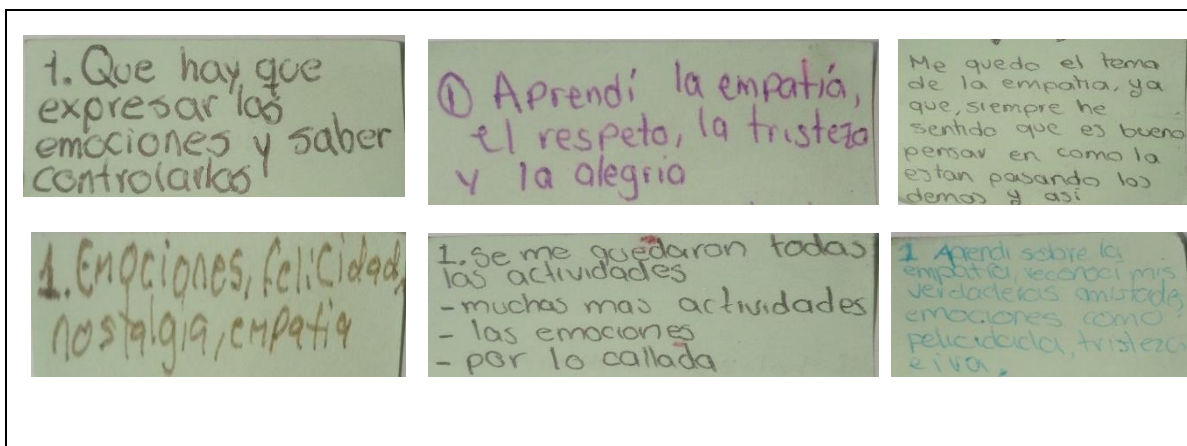 1. Que hay que
expresar las
emociones y saber
controlarlas
① Aprendí la empatía,
el respeto, la tristeza
y la alegria
Me quedo el tema
de la empatia, ya
que, siempre he
sentido que es bueno
pensar en como la
estan pasando los
demas y así
1. Emociones, felicidad,
nostalgia, empatia
1. se me quedaron todas
las actividades
- muchas mas actividades
- las emociones
- por lo callada
1 Aprendi sobre la
empatía, reconocí mis
verdaderas amistades,
emociones como
pelicidada, tristeza
e ira.